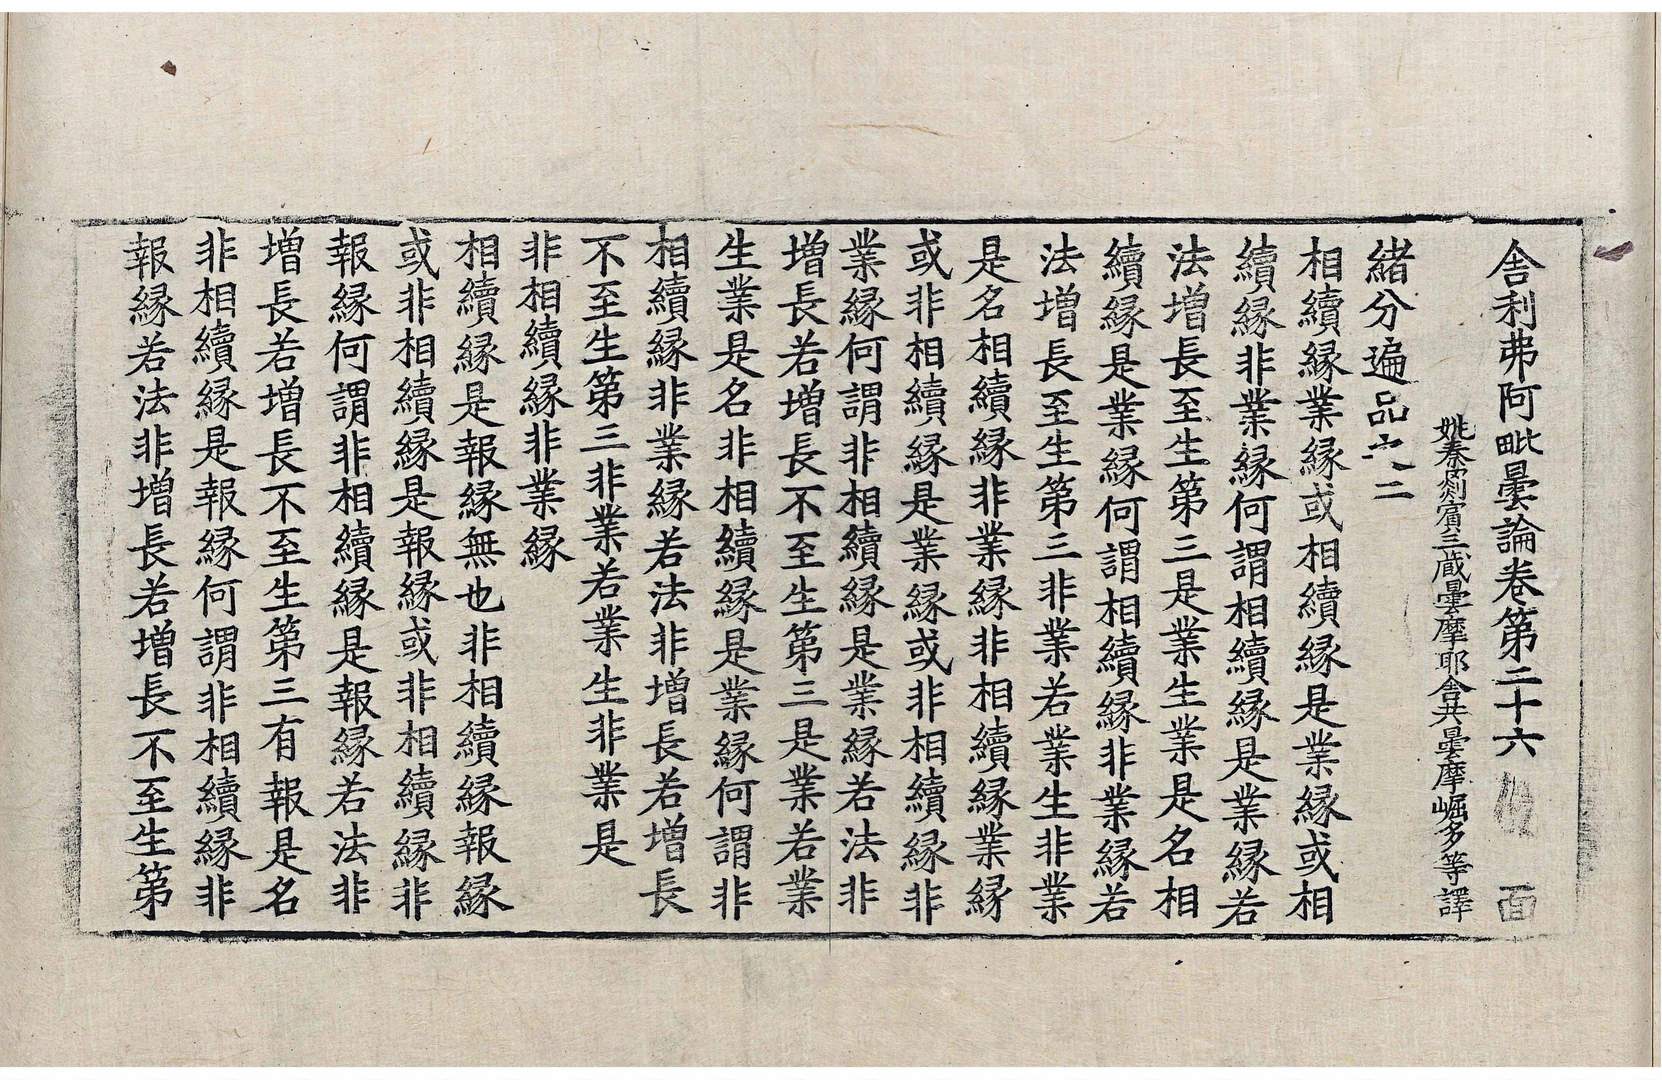 舍利弗阿毗曇論卷第二十六 面
姚秦罽賓三藏曇摩耶舍共曇摩崛多等譯
緒分遍品之二
相續緣業緣或相續緣是業緣或相
續緣非業緣何謂相續緣是業緣若
法增長至生第三是業生業是名相
續緣是業緣何謂相續緣非業緣若
法增長至生第三非業若業生非業
是名相續緣非業緣非相續緣業緣
或非相續緣是業緣或非相續緣非
業緣何謂非相續緣是業緣若法非
增長若增長不至生第三是業若業
生業是名非相續緣是業緣何謂非
相續緣非業緣若法非增長若增長
不至生第三非業若業生非業是
非相續緣非業緣
相續緣是報緣無也非相續緣報緣
或非相續緣是報緣或非相續緣非
報緣何謂非相續緣是報緣若法非
增長若增長不至生第三有報是名
非相續緣是報緣何謂非相續緣非
報緣若法非增長若增長不至生第